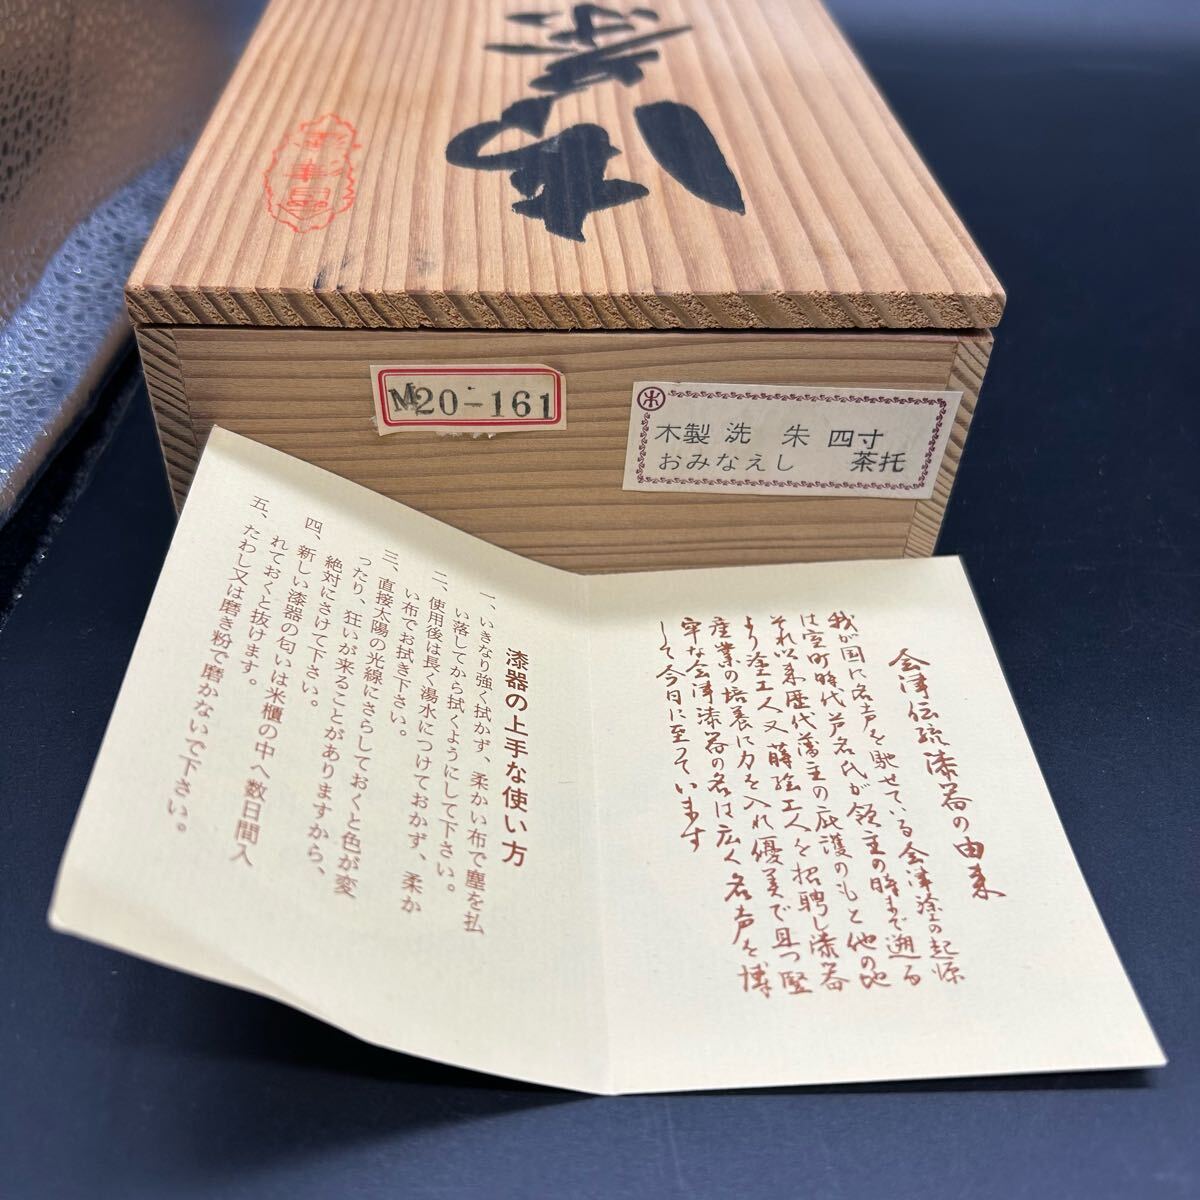 M20-161
木製 洗 朱 四寸
おみなえし 茶托
会津伝統漆器の由来
我が国に名声を馳せている会津塗の起源
は室町時代芦名氏が領主の時まで遡る
それ以来歴代藩主の庇護のもと他の地
より塗工人又蒔絵工人を招聘し漆器
産業の培養に力を入れ優美で且つ堅
牢な会津漆器の名は広く名声を博
して今日に至っています
漆器の上手な使い方
一、いきなり強く拭かず、柔かい布で塵を払
い落してから拭くようにして下さい。
二、使用後は長く湯水につけておかず、柔か
い布でお拭き下さい。
三、直接太陽の光線にさらしておくと色が変
ったり、狂いが来ることがありますから、
絶対にさけて下さい。
四、新しい漆器の匂いは米櫃の中へ数日間入
れておくと抜けます。
五、たわし又は磨き粉で磨かないで下さい。